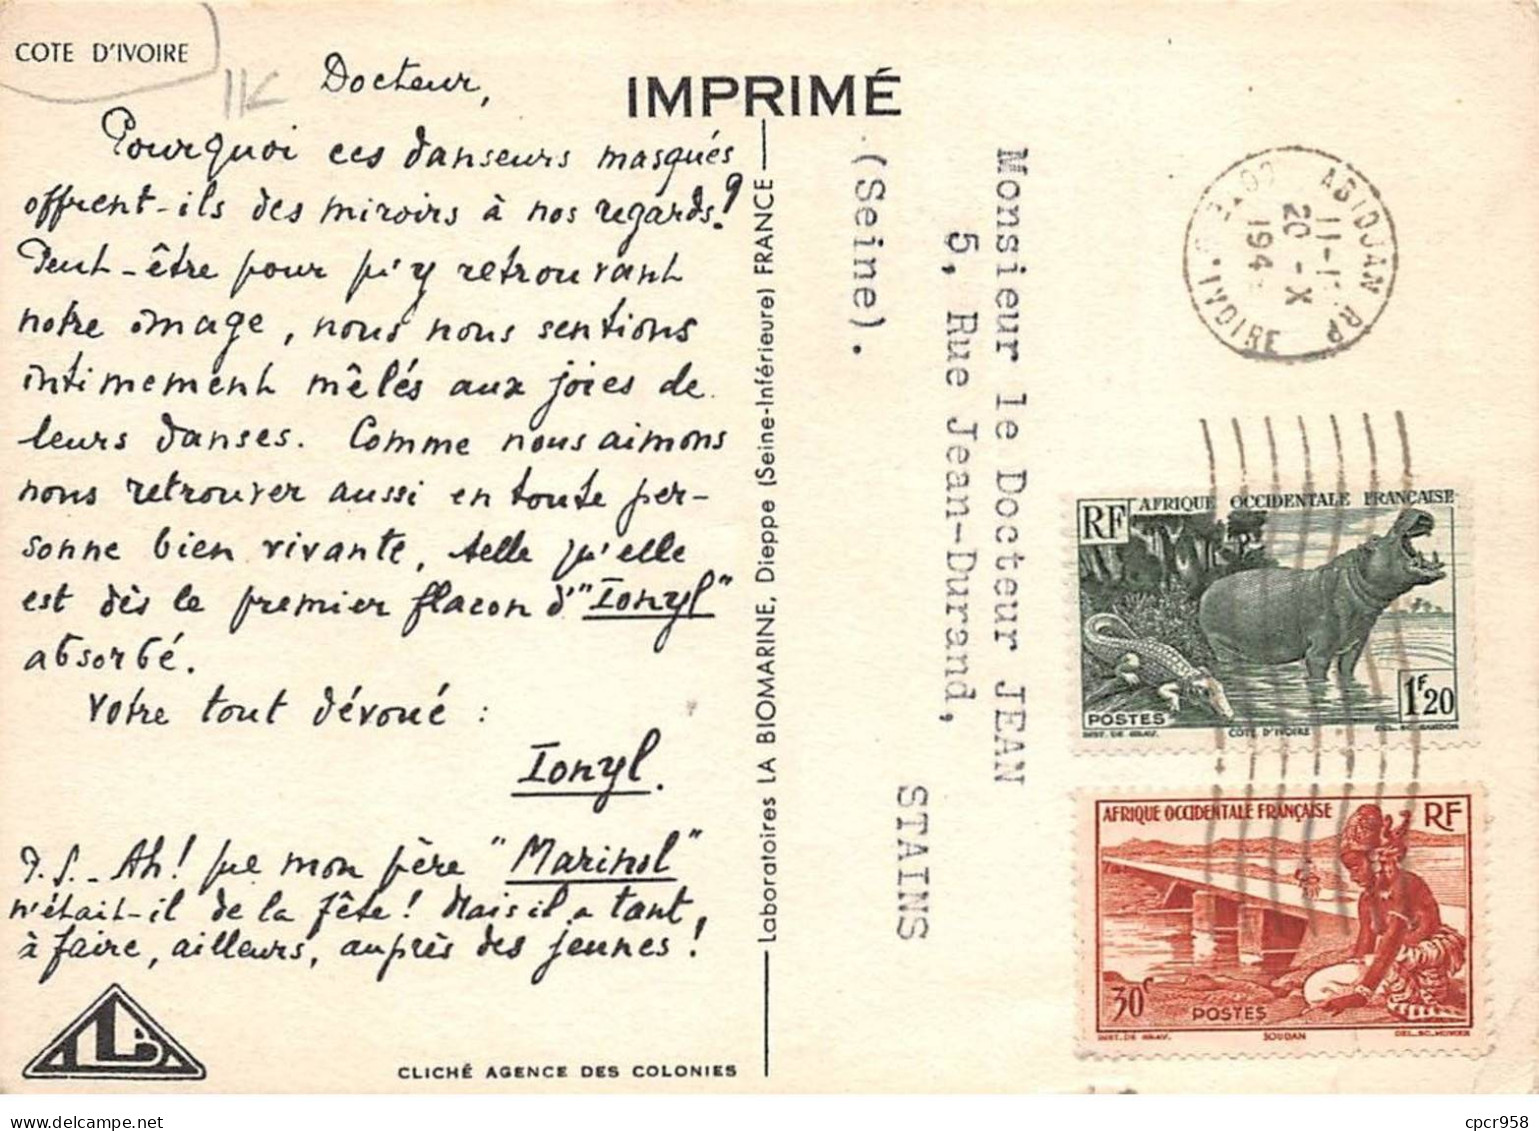 COTE D'IVOIRE
Docteur,
Pourquoi ces danseurs masqués
offrent-ils des miroirs à nos regards?
Peut-être pour qu'y retrouvant
notre image, nous nous sentions
intimement mêlés aux joies de
leurs danses. Comme nous aimons
nous retrouver aussi en toute per-
sonne bien vivante, telle qu'elle
est dès le premier flacon d'"Ionyl"
absorbé.
Votre tout dévoué :
Ionyl.
P.S. - Ah! que mon père "Marinol"
n'était-il de la fête! Mais il a tant
à faire, ailleurs, auprès des jeunes!
CLICHÉ AGENCE DES COLONIES
IMPRIMÉ
Laboratoires LA BIOMARINE, Dieppe (Seine-Inférieure) FRANCE
Monsieur le Docteur JEAN
5, Rue Jean-Durand,
STAINS
(Seine).
ABIDJAN RP
20 - X
194
COTE D'IVOIRE
AFRIQUE OCCIDENTALE FRANÇAISE
RF
1F20
POSTES
INST. DE GRAV.
COTE D'IVOIRE
AFRIQUE OCCIDENTALE FRANÇAISE
RF
30c
POSTES
INST. DE GRAV.
SOUDAN
cpcr958